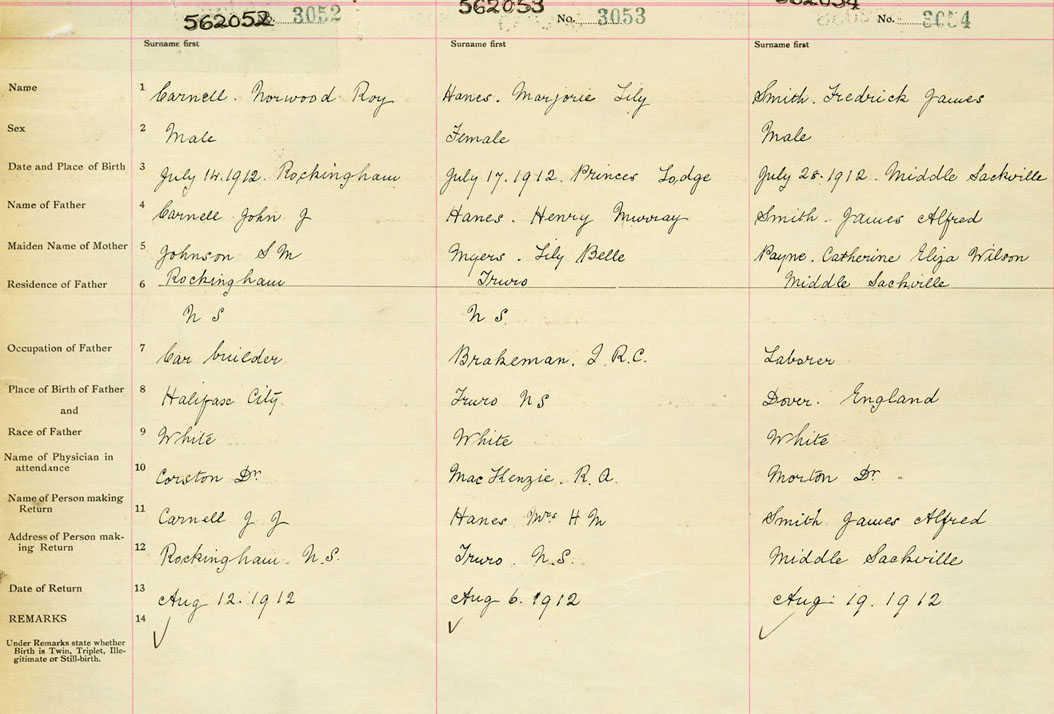 562052 No. 3052 562053 No. 3053 562054 No. 3054
Surname first Surname first Surname first
Name 1 Carnell. Norwood Roy Hanes. Marjorie Lily Smith. Fredrick James
Sex 2 Male Female Male
Date and Place of Birth 3 July 14.1912. Rockingham July 17.1912. Princes Lodge July 28.1912. Middle Sackville
Name of Father 4 Carnell John J Hanes. Henry Murray Smith. James Alfred
Maiden Name of Mother 5 Johnson S M Myers. Lily Belle Payne. Catherine Eliza Wilson
Residence of Father 6 Rockingham Truro Middle Sackville
N S N S
Occupation of Father 7 Car builder Brakeman. I.R.C. Laborer
Place of Birth of Father 8 Halifax City Truro NS Dover. England
and
Race of Father 9 White White White
Name of Physician in
attendance 10 Corston Dr. MacKenzie. R.A. Morton Dr.
Name of Person making
Return 11 Carnell J J Hanes Mrs H M Smith James Alfred
Address of Person mak-
ing Return 12 Rockingham N.S. Truro. N.S. Middle Sackville
Date of Return 13 Aug 12.1912 Aug 6. 1912 Aug. 19. 1912
REMARKS 14
Under Remarks state whether
Birth is Twin, Triplet, Ille-
gitimate or Still-birth.